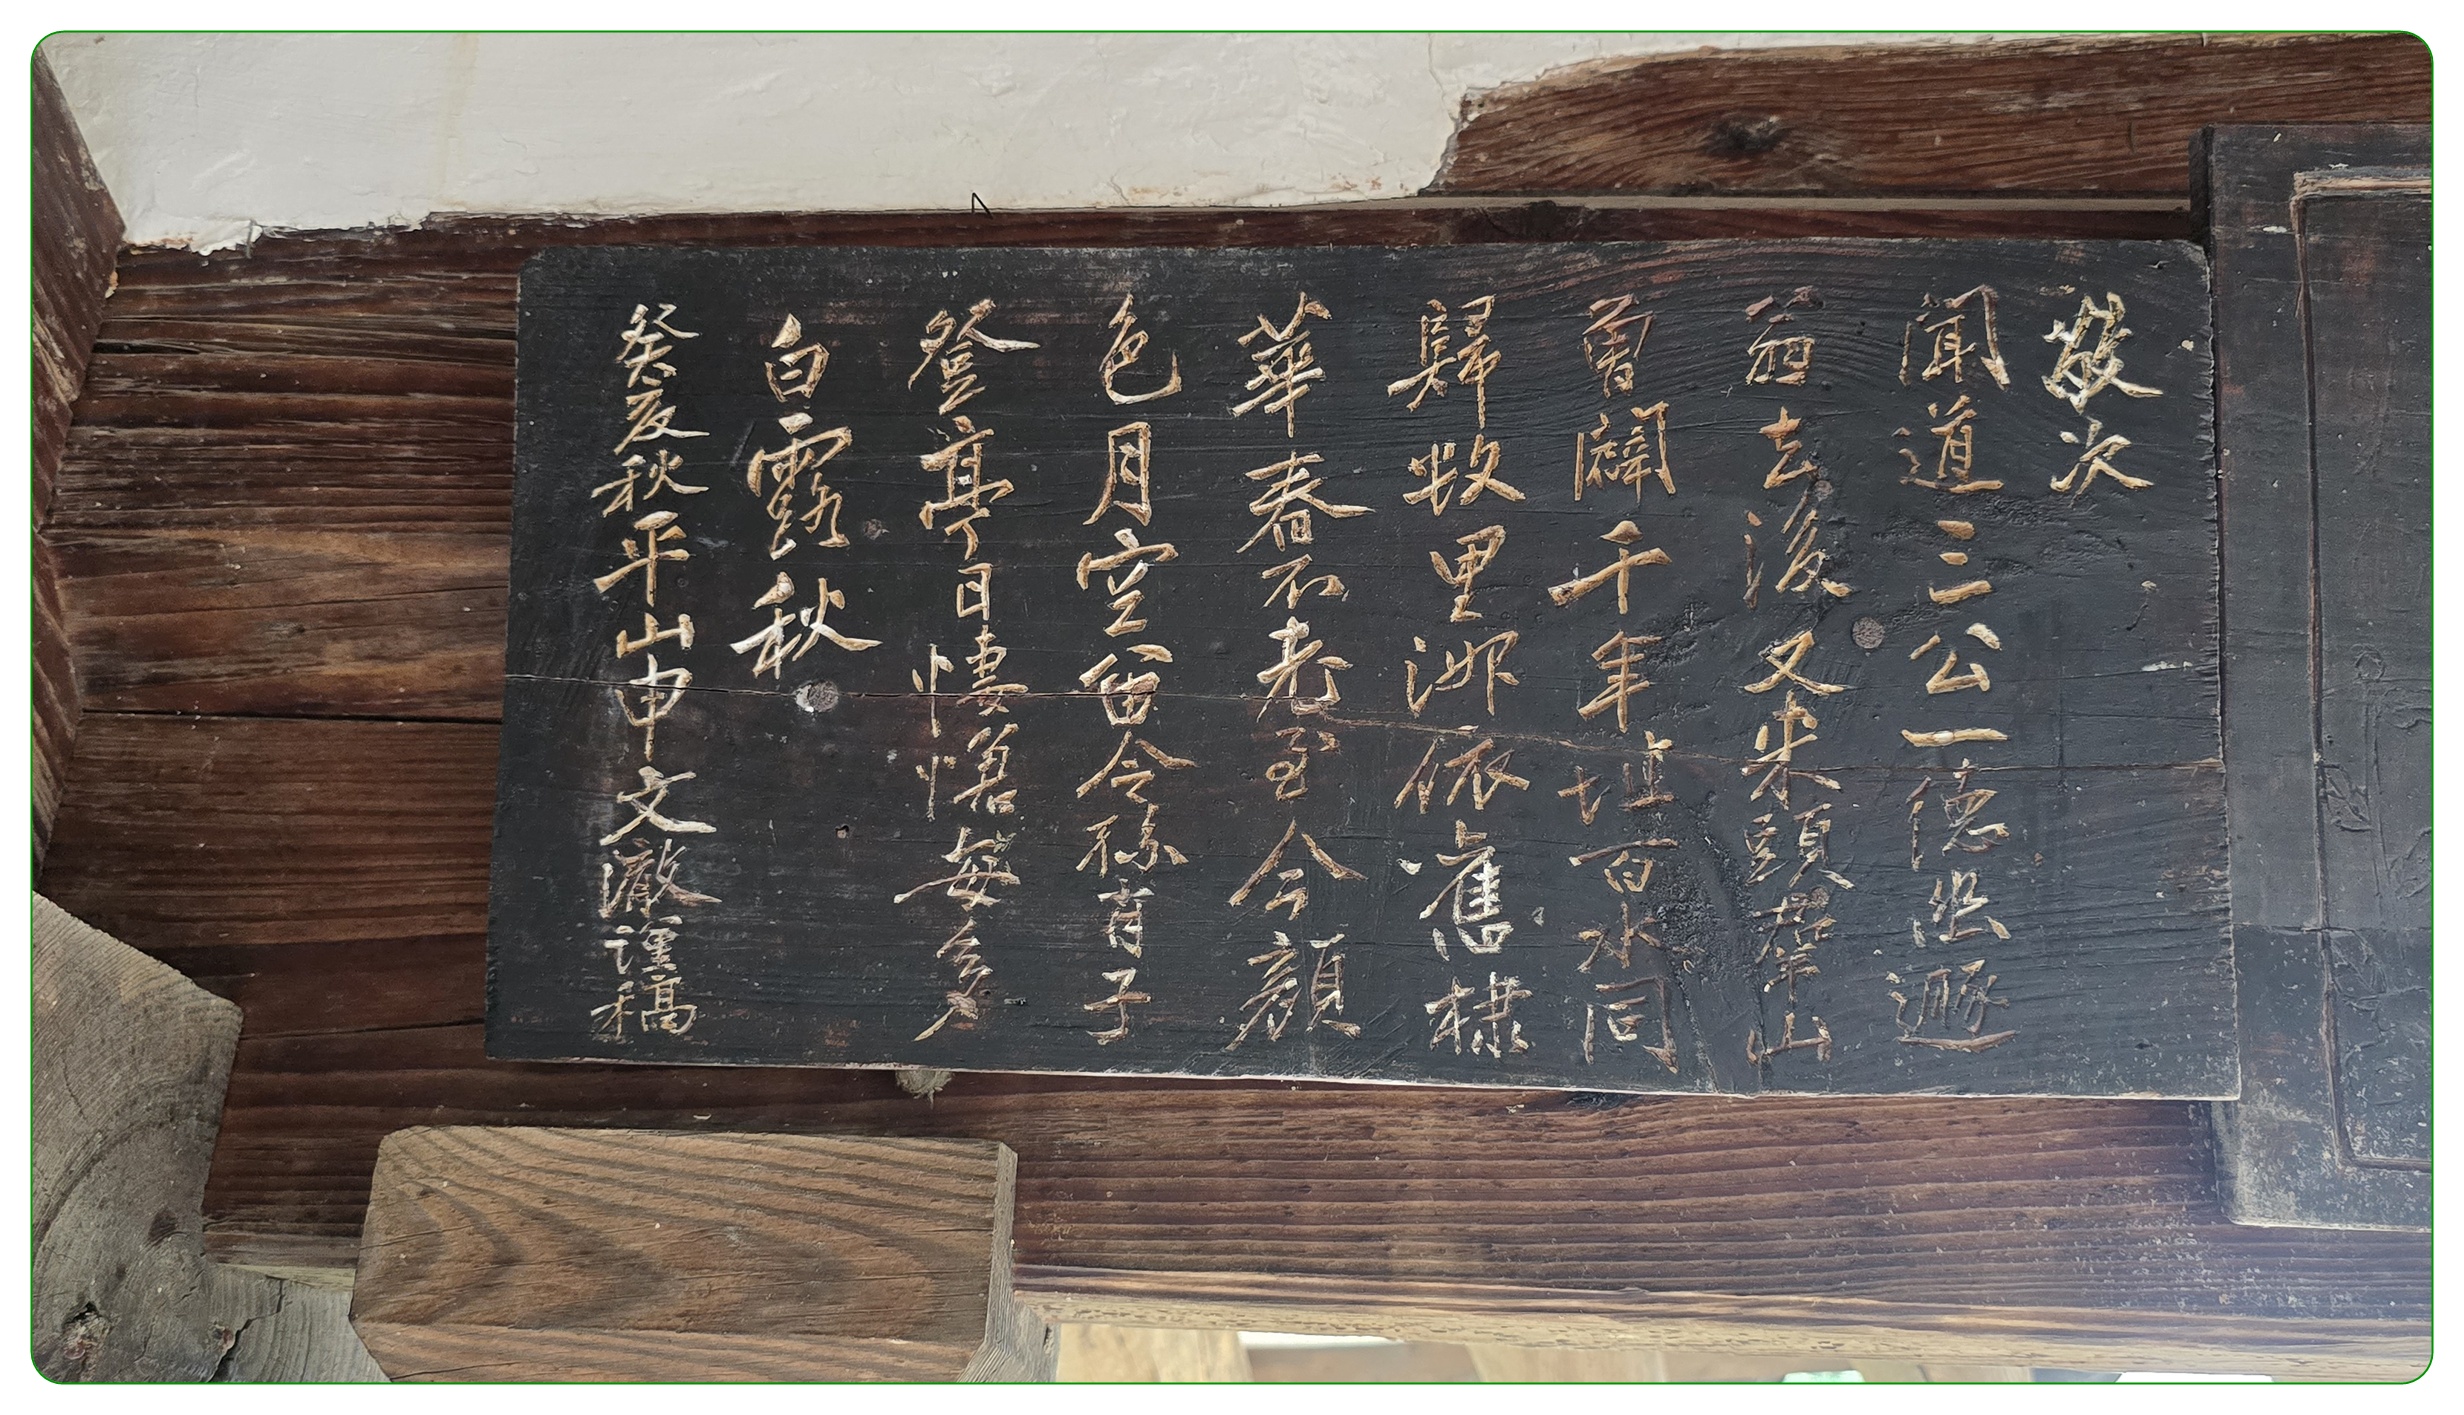 敬次
聞道三公一德幽遯
翁去後又来頭羣山
曾闢千年址百水同
歸牧里洲依舊棣
華春不老至今顔
色月空留令孫肖子
登亭日悽愴每多
白露秋
癸亥秋平山申文澈謹稿